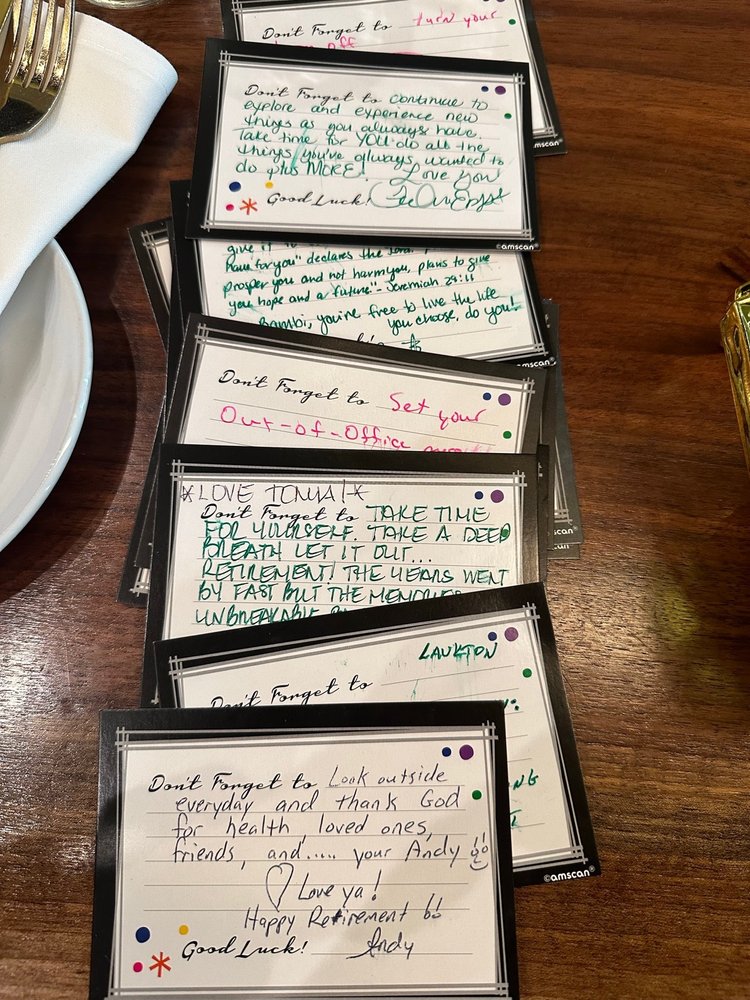 Don't Forget to turn your
off
©amscan®
Don't Forget to continue to
explore and experience new
things as you always have.
Take time for YOU do all the
things you've always wanted to
do plus MORE! Love You
Good Luck!
©amscan®
give it to
have for you" declares the Lord.
prosper you and not harm you, plans to give
you hope and a future." - Jeremiah 29:11
Bambi, you're free to live the life
you choose, do you!
amscan®
Don't Forget to Set your
Out-of-Office
*LOVE TONYA!*
Don't Forget to TAKE TIME
FOR YOURSELF. TAKE A DEEP
BREATH LET IT OUT...
RETIREMENT! THE YEARS WENT
BY FAST BUT THE MEMORIES
UNBREAKABLE
LAUKTON
Don't Forget to
©amscan®
Don't Forget to Look outside
everyday and thank God
for health, loved ones,
friends, and..... your Andy !!
Love ya!
Happy Retirement !!
Good Luck! Andy